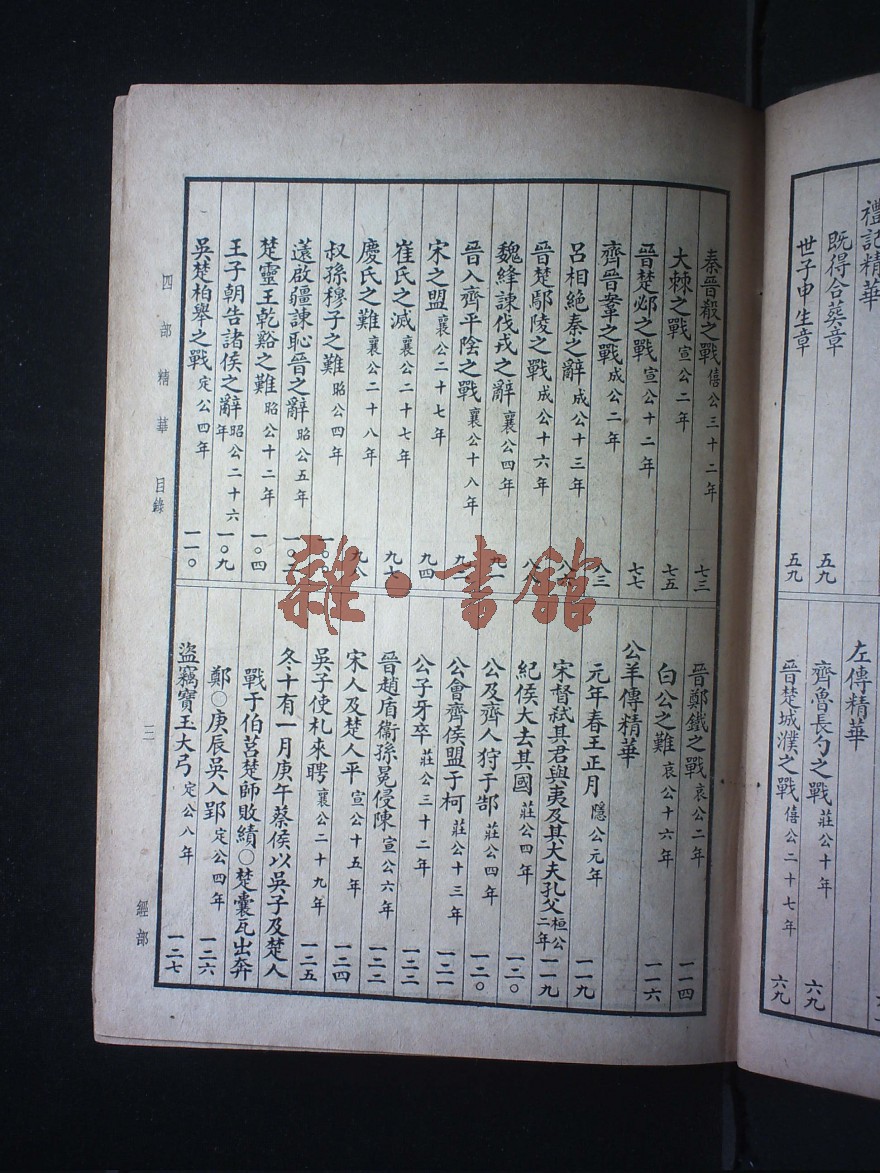 禮記精華
既得合葬章 五九
世子申生章 五九
左傳精華
齊魯長勺之戰 莊公十年 六九
晉楚城濮之戰 僖公二十七年 六九
秦晉殽之戰 僖公三十二年 七三
大棘之戰 宣公二年 七五
晉楚邲之戰 宣公十二年 七七
齊晉鞌之戰 成公二年 八三
呂相絕秦之辭 成公十三年
晉楚鄢陵之戰 成公十六年 八八
魏絳諫伐戎之辭 襄公四年
晉入齊平陰之戰 襄公十八年
宋之盟 襄公二十七年 九四
崔氏之滅 襄公二十七年 九七
慶氏之難 襄公二十八年 九八
叔孫穆子之難 昭公四年
薳啟疆諫恥晉之辭 昭公五年
楚靈王乾谿之難 昭公十二年 一〇四
王子朝告諸侯之辭 昭公二十六年 一〇九
吳楚柏舉之戰 定公四年 一一〇
晉鄭鐵之戰 哀公二年 一一四
白公之難 哀公十六年 一一六
公羊傳精華
元年春王正月 隱公元年 一一九
宋督弒其君與夷及其大夫孔父 桓公二年 一一九
紀侯大去其國 莊公四年 一二〇
公及齊人狩于郜 莊公四年 一二〇
公會齊侯盟于柯 莊公十三年 一二一
公子牙卒 莊公三十二年 一二二
晉趙盾衞孫免侵陳 宣公六年 一二二
宋人及楚人平 宣公十五年 一二四
吳子使札來聘 襄公二十九年 一二五
冬十有一月庚午蔡侯以吳子及楚人
戰于伯莒楚師敗績〇楚囊瓦出奔
鄭〇庚辰吳入郢 定公四年 一二六
盜竊寶玉大弓 定公八年 一二七
四部精華 目錄 三 經部
雜·書館